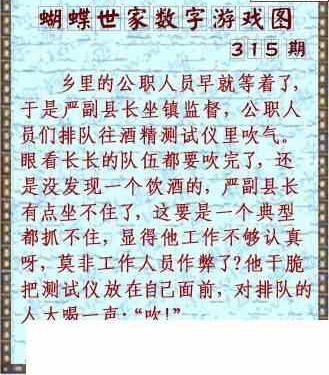 蝴蝶世家数字游戏图
315期
乡里的公职人员早就等着了,
于是严副县长坐镇监督，公职人
员们排队往酒精测试仪里吹气。
眼看长长的队伍都要吹完了, 还
是没发现一个饮酒的, 严副县长
有点坐不住了, 这要是一个典型
都抓不住, 显得他工作不够认真
呀, 莫非工作人员作弊了?他干脆
把测试仪放在自己面前, 对排队的
人大喝一声:“吹!”